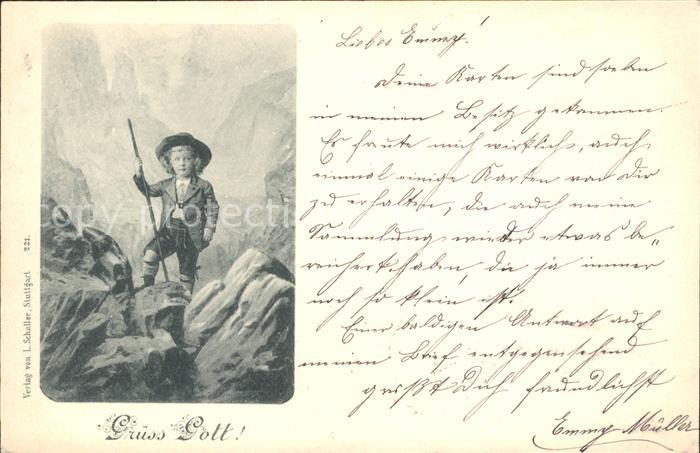 Liebes Emmy!
Deine Karten sind soeben
in meinen Besitz gekommen.
Es freute mich wirklich, auch
einmal einige Karten von Dir
zu erhalten, die auch meine
Sammlung wieder etwas be„
reichert haben, die ja immer
noch so klein ist.
Einer baldigen Antwort auf
meinen Brief entgegensehend
grüßt Dich freundlichst
Emmy Müller
Grüss Gott!
Verlag von L. Schaller, Stuttgart 221.
copy protection